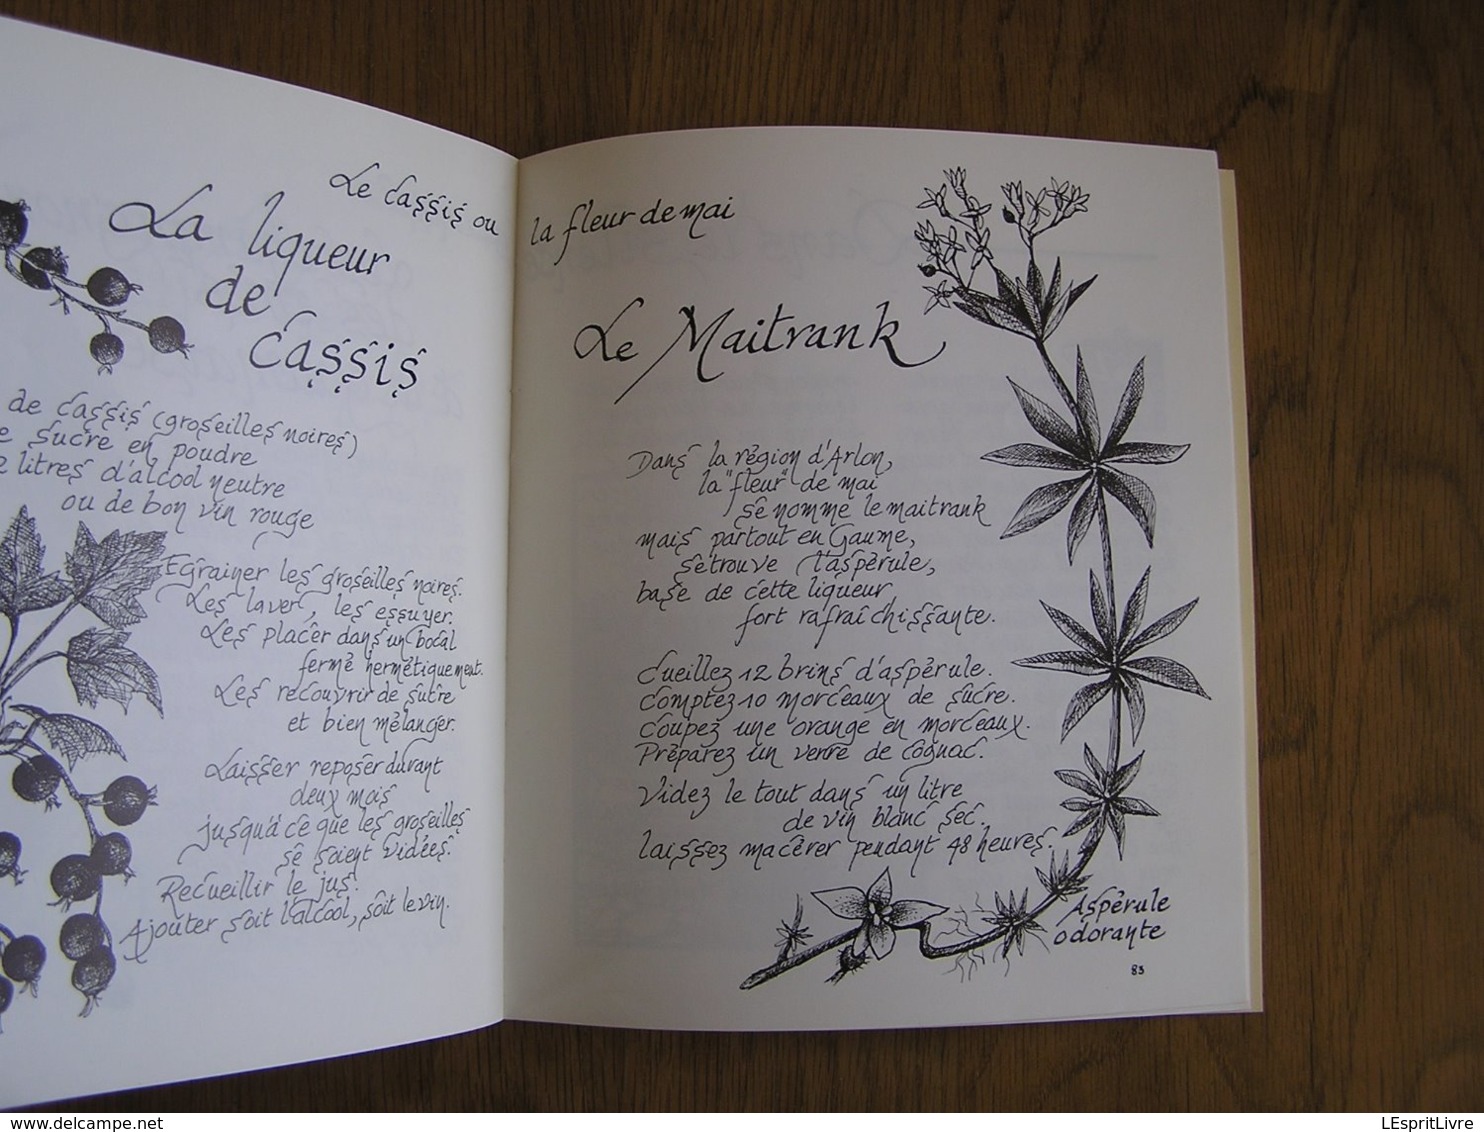 Le Cassis ou
La liqueur
de
Cassis
de Cassis (groseilles noires)
sucre en poudre
2 litres d'alcool neutre
ou de bon vin rouge
Egrainer les groseilles noires.
Les laver, les essuyer.
Les placer dans un bocal
fermé hermétiquement.
Les recouvrir de sucre
et bien mélanger.
Laisser reposer durant
deux mois
jusqu'à ce que les groseilles
se soient vidées.
Recueillir le jus.
Ajouter soit l'alcool, soit le vin.
la fleur de mai
Le Maitrank
Dans la région d'Arlon,
la "fleur" de mai
se nomme le maitrank
mais partout en Gaume,
se trouve l'aspérule,
base de cette liqueur
fort rafraîchissante.
Cueillez 12 brins d'aspérule.
Comptez 10 morceaux de sucre.
Coupez une orange en morceaux.
Préparez un verre de cognac.
Videz le tout dans un litre
de vin blanc sec.
Laissez macérer pendant 48 heures.
Aspérule
odorante
83
delcampe.net
LEspritLivre